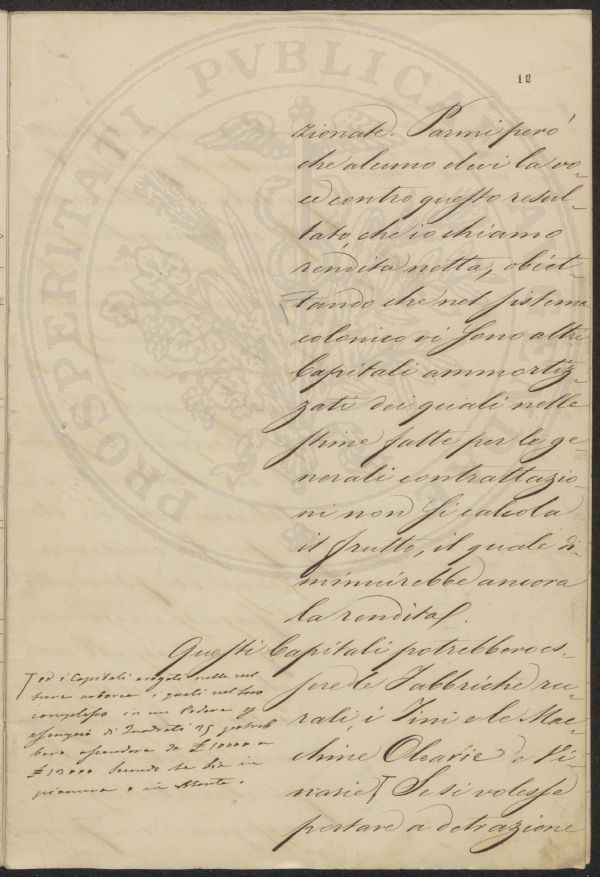 12
zionate. Parmi però
che alcuno elevi la vo-
ce contro questo resul-
tato, che io chiamo
rendita netta, obiet-
tando che nel sistema
colonico vi sono altri
Capitali ammortiz-
zati dei quali nelle
stime fatte per le ge-
nerali contrattazio-
ni non si calcola
il frutto, il quale di-
minuirebbe ancora
la rendita.
Questi Capitali potrebbero es-
sere le Fabbriche ru-
rali, i Tini e le Mac-
chine Olearie e Vi-
narie Γ Se si volesse
portare a detrazione
Γ ed i Capitali erogati nelle cul
ture arboree, i quali nel loro
complesso in un Podere p
esempio di Quadrati 25 potreb
bero ascendere da £ 10000 a
£ 12000 secondo se sia in
pianura o in Monte.
PROSPERITATI PVBLICAE